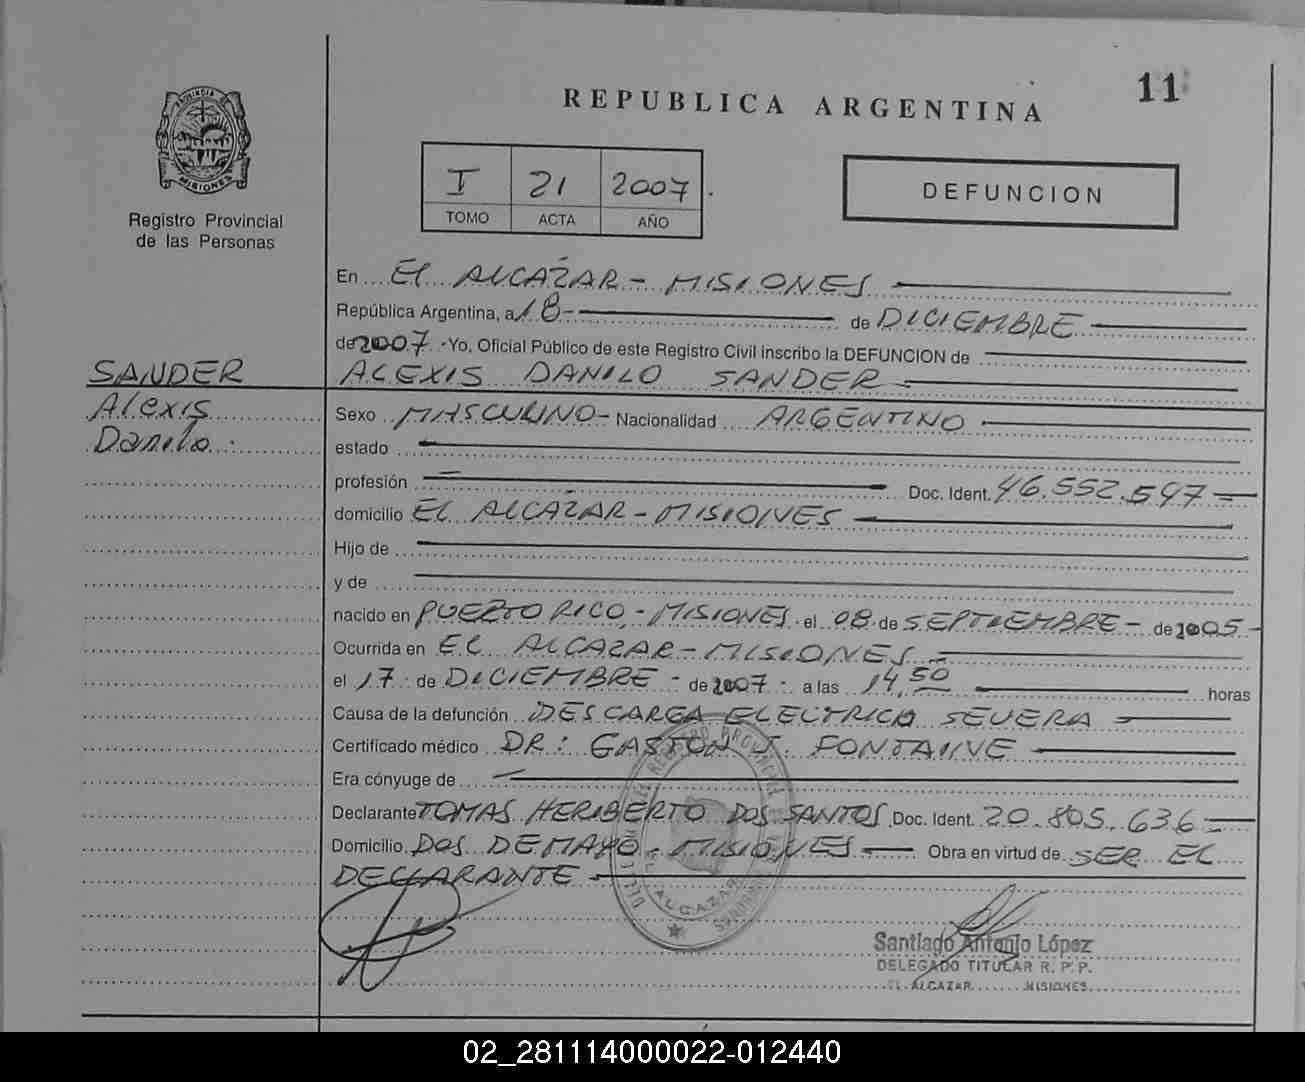 11
REPUBLICA ARGENTINA
PROVINCIA
MISIONES
Registro Provincial
de las Personas
I 21 2007
TOMO ACTA AÑO
DEFUNCION
En EL ALCAZAR - MISIONES
República Argentina, a 18 - de DICIEMBRE
de 2007 - Yo, Oficial Público de este Registro Civil inscribo la DEFUNCION de
ALEXIS DANILO SANDER
SANDER
Alexis
Danilo
Sexo MASCULINO - Nacionalidad ARGENTINO
estado
profesión Doc. Ident. 46.552.547
domicilio EL ALCAZAR - MISIONES
Hijo de
y de
nacido en PUERTO RICO - MISIONES el 08 de SEPTIEMBRE - de 2005 -
Ocurrida en EL ALCAZAR - MISIONES
el 17 de DICIEMBRE - de 2007 - a las 14,50 horas
Causa de la defunción DESCARGA ELECTRICA SEVERA
Certificado médico DR: GASTON J. FONTAINE
Era cónyuge de
Declarante TOMAS HERIBERTO DOS SANTOS Doc. Ident. 20.805.636
Domicilio DOS DE MAYO - MISIONES Obra en virtud de SER EL
DECLARANTE
EL ALCAZAR
Santiago Antonio López
DELEGADO TITULAR R. P. P.
EL ALCAZAR MISIONES
02_281114000022-012440